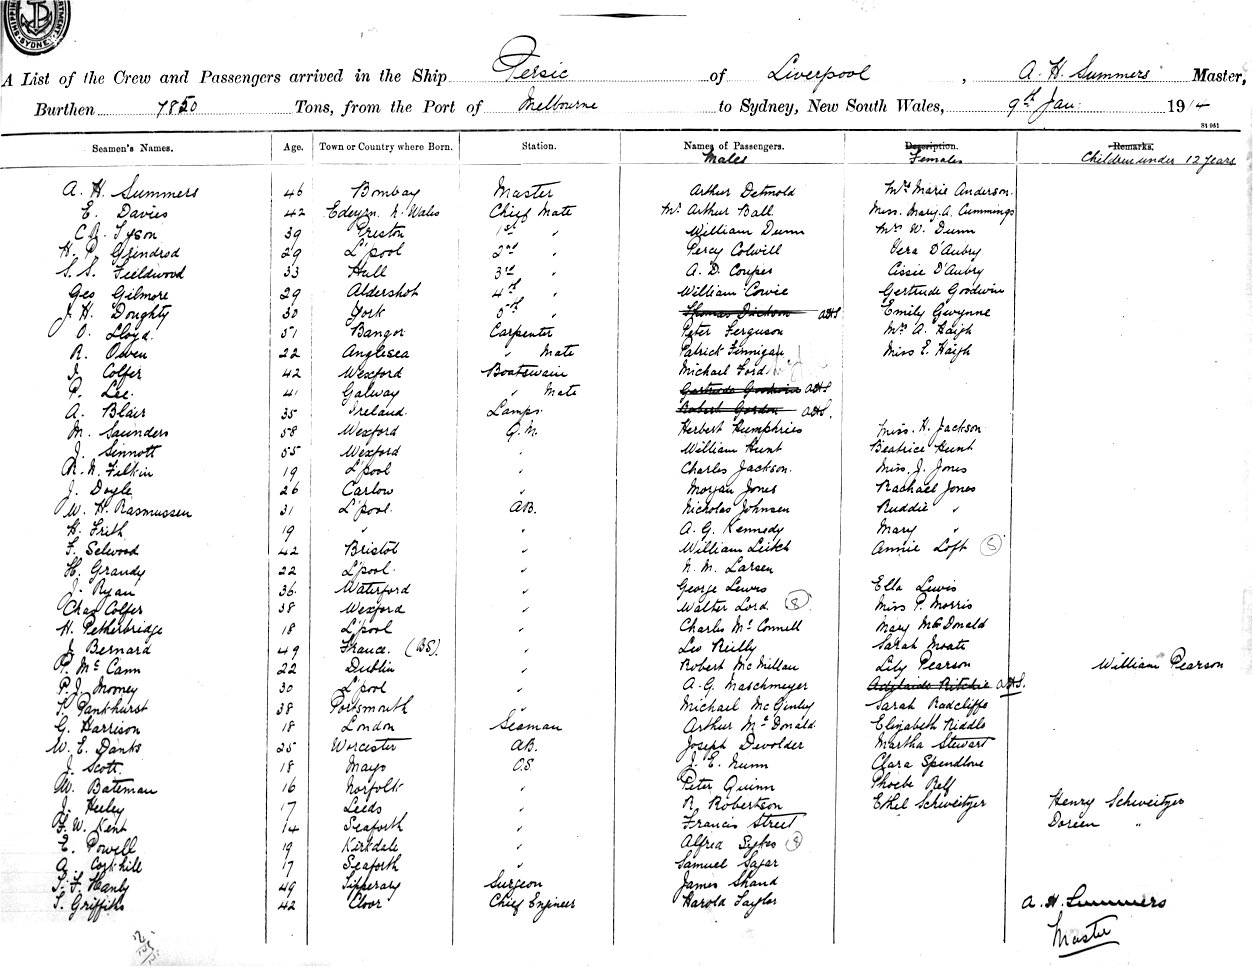 SHIPPING
SYDNEY
A List of the Crew and Passengers arrived in the Ship Persic of Liverpool, A. H. Summers Master,
Burthen 7850 Tons, from the Port of Melbourne to Sydney, New South Wales, 9th Jan. 1914
S1 951
Seamen's Names. Age. Town or Country where Born. Station. Names of Passengers. Description. Remarks.
Males Females Children under 12 years
A. H. Summers 46 Bombay Master Arthur Detmold Mrs Marie Anderson.
E. Davies 42 Edeyrn. N. Wales Chief Mate Mr Arthur Ball Miss. Mary A. Cummings
C. R. Tyson 39 Preston 1st " William Dunn Mrs W. Dunn
H. P. Grindrod 29 L'pool 2nd " Percy Colwill Vera D'Aubry
S. S. Fieldwood 33 Hull 3rd " A. D. Couper Cissie D'Aubry
Geo Gilmore 29 Aldershot 4th " William Cowie Gertrude Goodwin
J. H. Doughty 30 York 5th " Thomas Dickson AHS Emily Gwynne
O. Lloyd. 51 Bangor Carpenter Peter Ferguson Mrs A. Haigh
R. Owen 22 Anglesea " Mate Patrick Finnigan Miss E. Haigh
J. Colfer 42 Wexford Boatswain Michael Ford
P. Lee. 41 Galway " Mate Gertrude Goodwin AHS
A. Blair 35 Ireland. Lamps. Robert Gordon AHS.
M. Saunders 58 Wexford Q. M. Herbert Humphries Miss. H. Jackson
J. Sinnott 55 Wexford " William Hunt Beatrice Hunt
R. N. Filkin 19 L'pool " Charles Jackson. Miss. J. Jones
J. Doyle 26 Carlow " Morgan Jones Rachael Jones
W. H. Rasmussen 31 L'pool. AB. Nicholas Johnsen Ruddie "
H. Frith 19 " " A. G. Kennedy Mary "
F. Selwood 42 Bristol " William Leitch Annie Loft (S)
H. Grandy 22 L'pool. " N. M. Larsen
J. Ryan 36. Waterford " George Lewis Ella Lewis
Chas Colfer 38 Wexford " Walter Lord (S) Miss P. Morris
H. Petherbridge 18 L'pool " Charles McConnell Mary McDonald
J. Bernard 49 France. (BS). " Leo Reilly Sarah Moate
P. McCann 22 Dublin " Robert McMillan Lily Pearson William Pearson
P. J. Mooney 30 L'pool " A. G. Maschmeyer Adelaide Ritchie AHS.
T. Pankhurst 38 Portsmouth " Michael McGinley Sarah Radcliffe
G. Harrison 18 London Seaman Arthur McDonald. Elizabeth Riddle
W. E. Danks 25 Worcester AB. Joseph Devolder Martha Stewart
J. Scott. 18 Mayo O.S. J. E. Nunn Clara Spendlove
W. Bateman 16 Norfolk " Peter Quinn Phoebe Relf
J. Heeley 17 Leeds " R. Robertson Ethel Schweitzer Henry Schweitzer
F. W. Kent 14 Seaforth " Francis Street Doreen "
E. Powell 19 Kirkdale " Alfred Sykes (S)
A. Corkhill 17 Seaforth " Samuel Sagar
T. F. Hanly 49 Tipperary Surgeon James Shand
T. Griffiths 42 Cloor Chief Engineer Harold Taylor A. H. Summers
Master